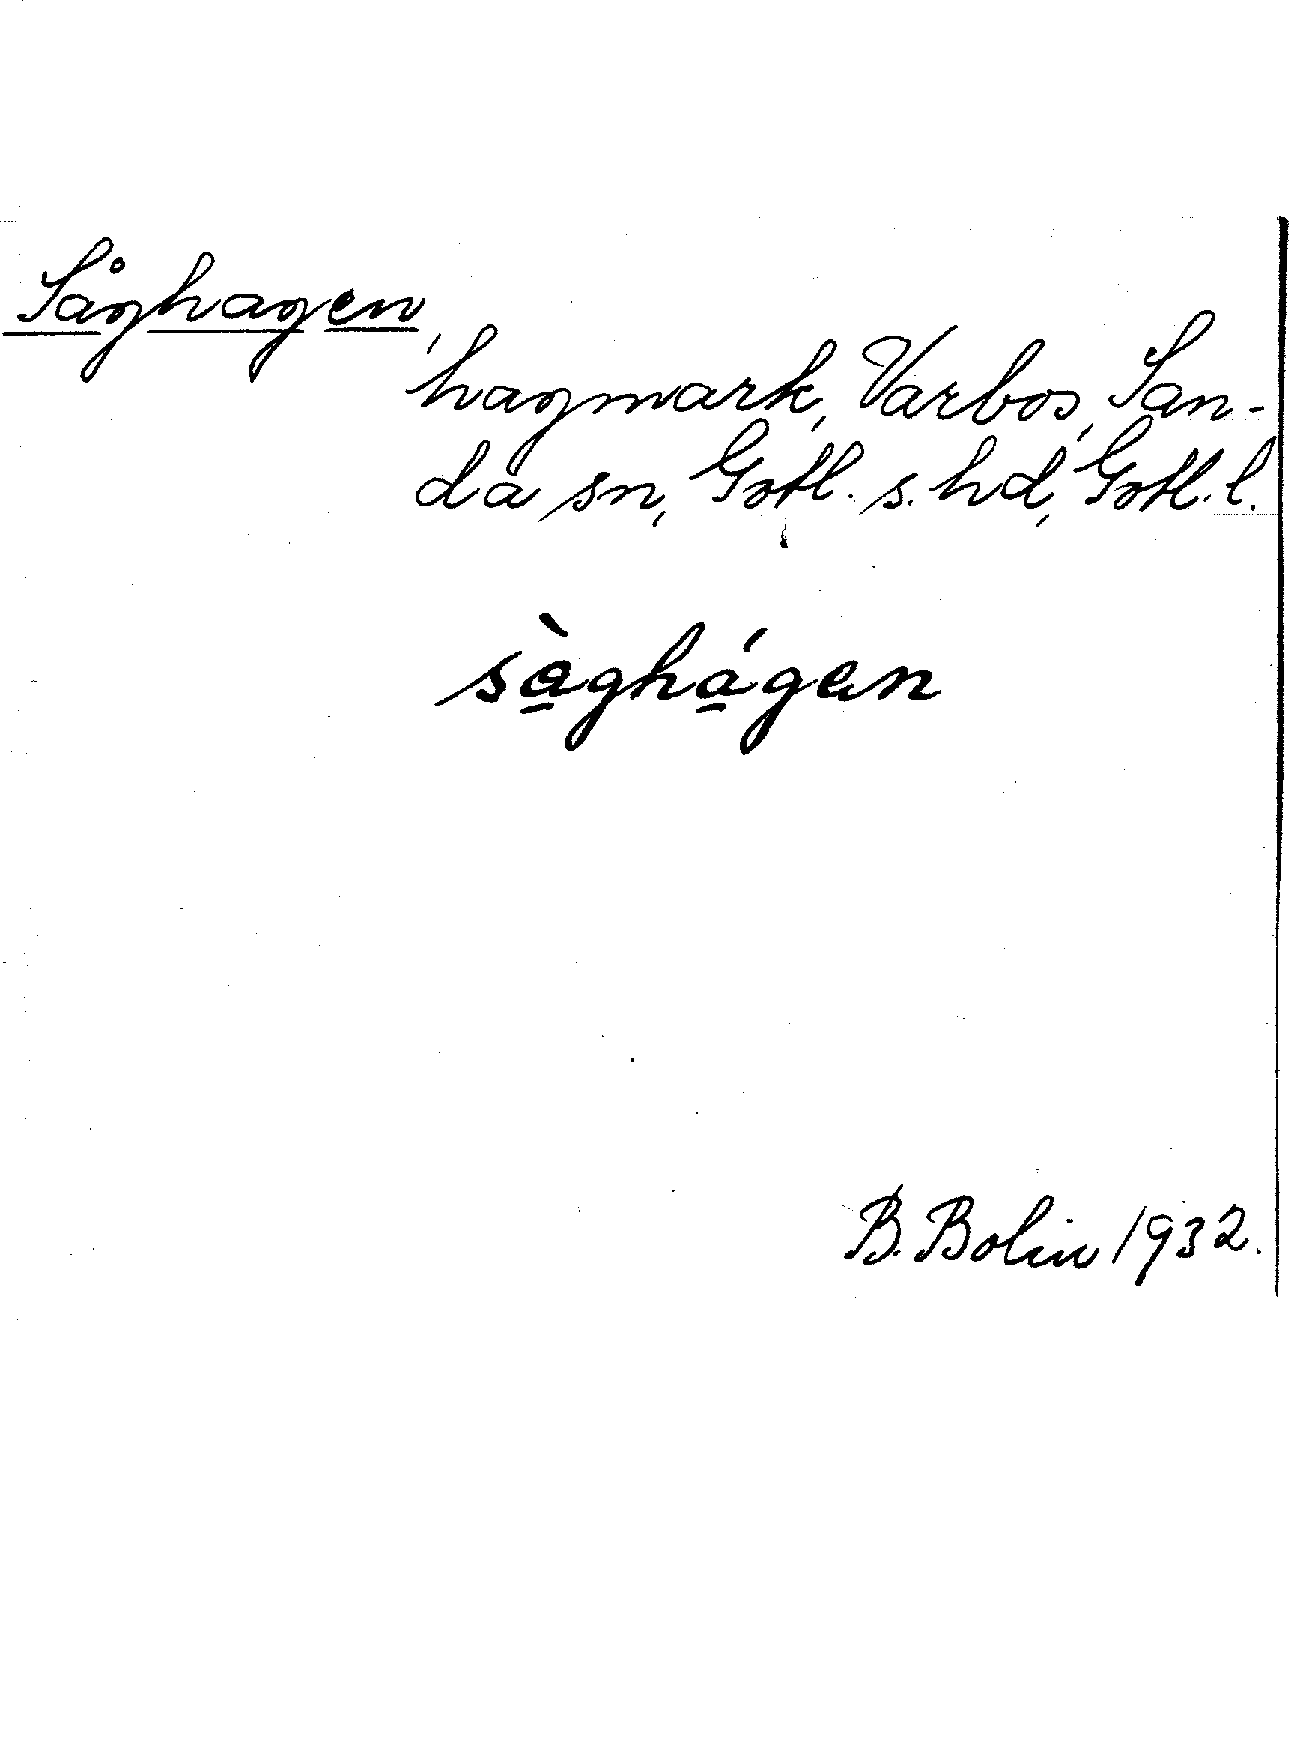 Såghagen,
hagmark, Varbos, San-
da sn, Gotl. s. hd, Gotl. l.
sàghágen
B. Bolin 1932.